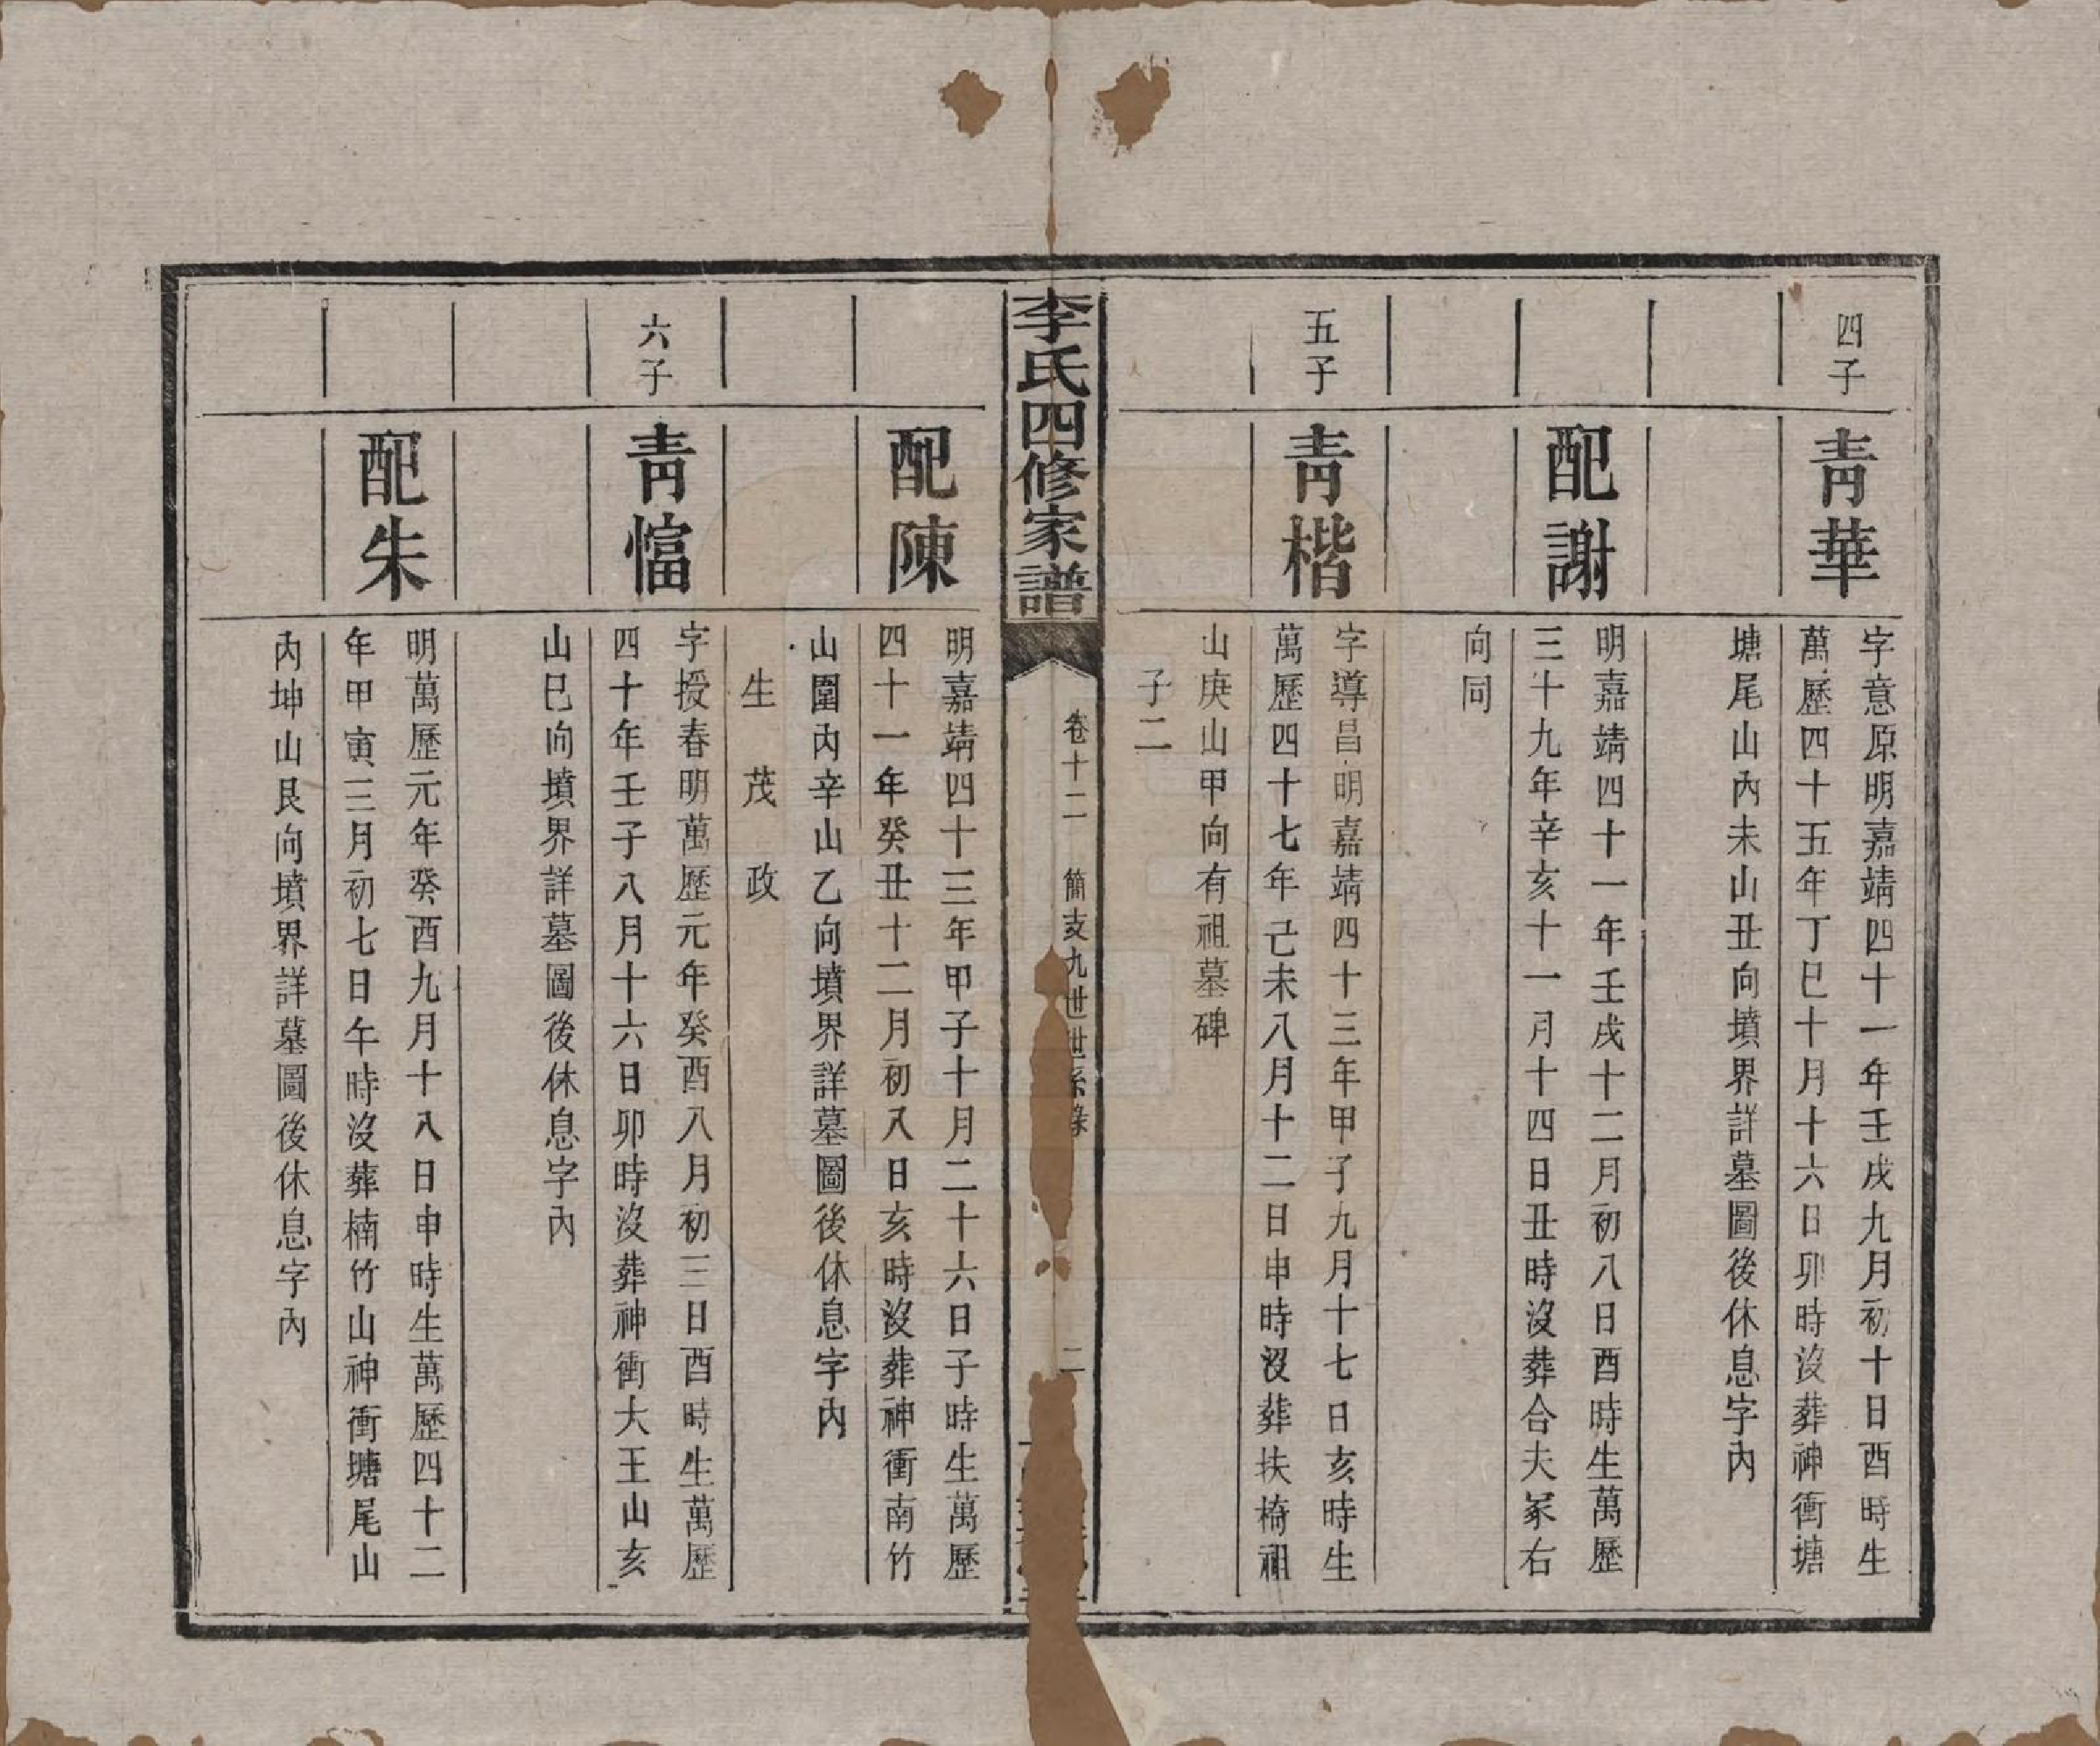 四子
青華
字意原明嘉靖四十一年壬戌九月初十日酉時生
萬歷四十五年丁巳十月十六日卯時沒葬神衝塘
塘尾山內未山丑向墳界詳墓圖後休息字內
配謝
明嘉靖四十一年壬戌十二月初八日酉時生萬歷
三十九年辛亥十一月十四日丑時沒葬合夫冢右
向同
五子
青楷
字導昌明嘉靖四十三年甲子九月十七日亥時生
萬歷四十七年己未八月十二日申時沒葬扶椅祖
山庚山甲向有祖墓碑
子二
李氏四修家譜
卷十二
簡支九世世系錄
二
配陳
明嘉靖四十三年甲子十月二十六日子時生萬歷
四十一年癸丑十二月初八日亥時沒葬神衝南竹
山圍內辛山乙向墳界詳墓圖後休息字內
生茂政
六子
青愊
字授春明萬歷元年癸酉八月初三日酉時生萬歷
四十年壬子八月十六日卯時沒葬神衝大王山亥
山巳向墳界詳墓圖後休息字內
配朱
明萬歷元年癸酉九月十八日申時生萬歷四十二
年甲寅三月初七日午時沒葬楠竹山神衝塘尾山
內坤山艮向墳界詳墓圖後休息字內